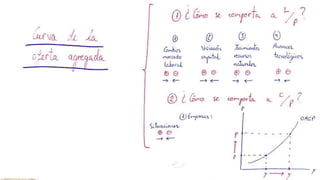 Curva de la
oferta agregada
① ¿Cómo se comporta a L/P?
① ② ③ ④
Cambios mercado laboral
Variación capital
Incremento recursos naturales
Avances tecnológicos
⊕ ⊖ ⊕ ⊖ ⊕ ⊖
→ ← → ← → ← → ←
② ¿Cómo se comporta a C/P?
① Empresas:
Situaciones
⊕ ⊖
→ ←
P
OACP
P
P
Y Y